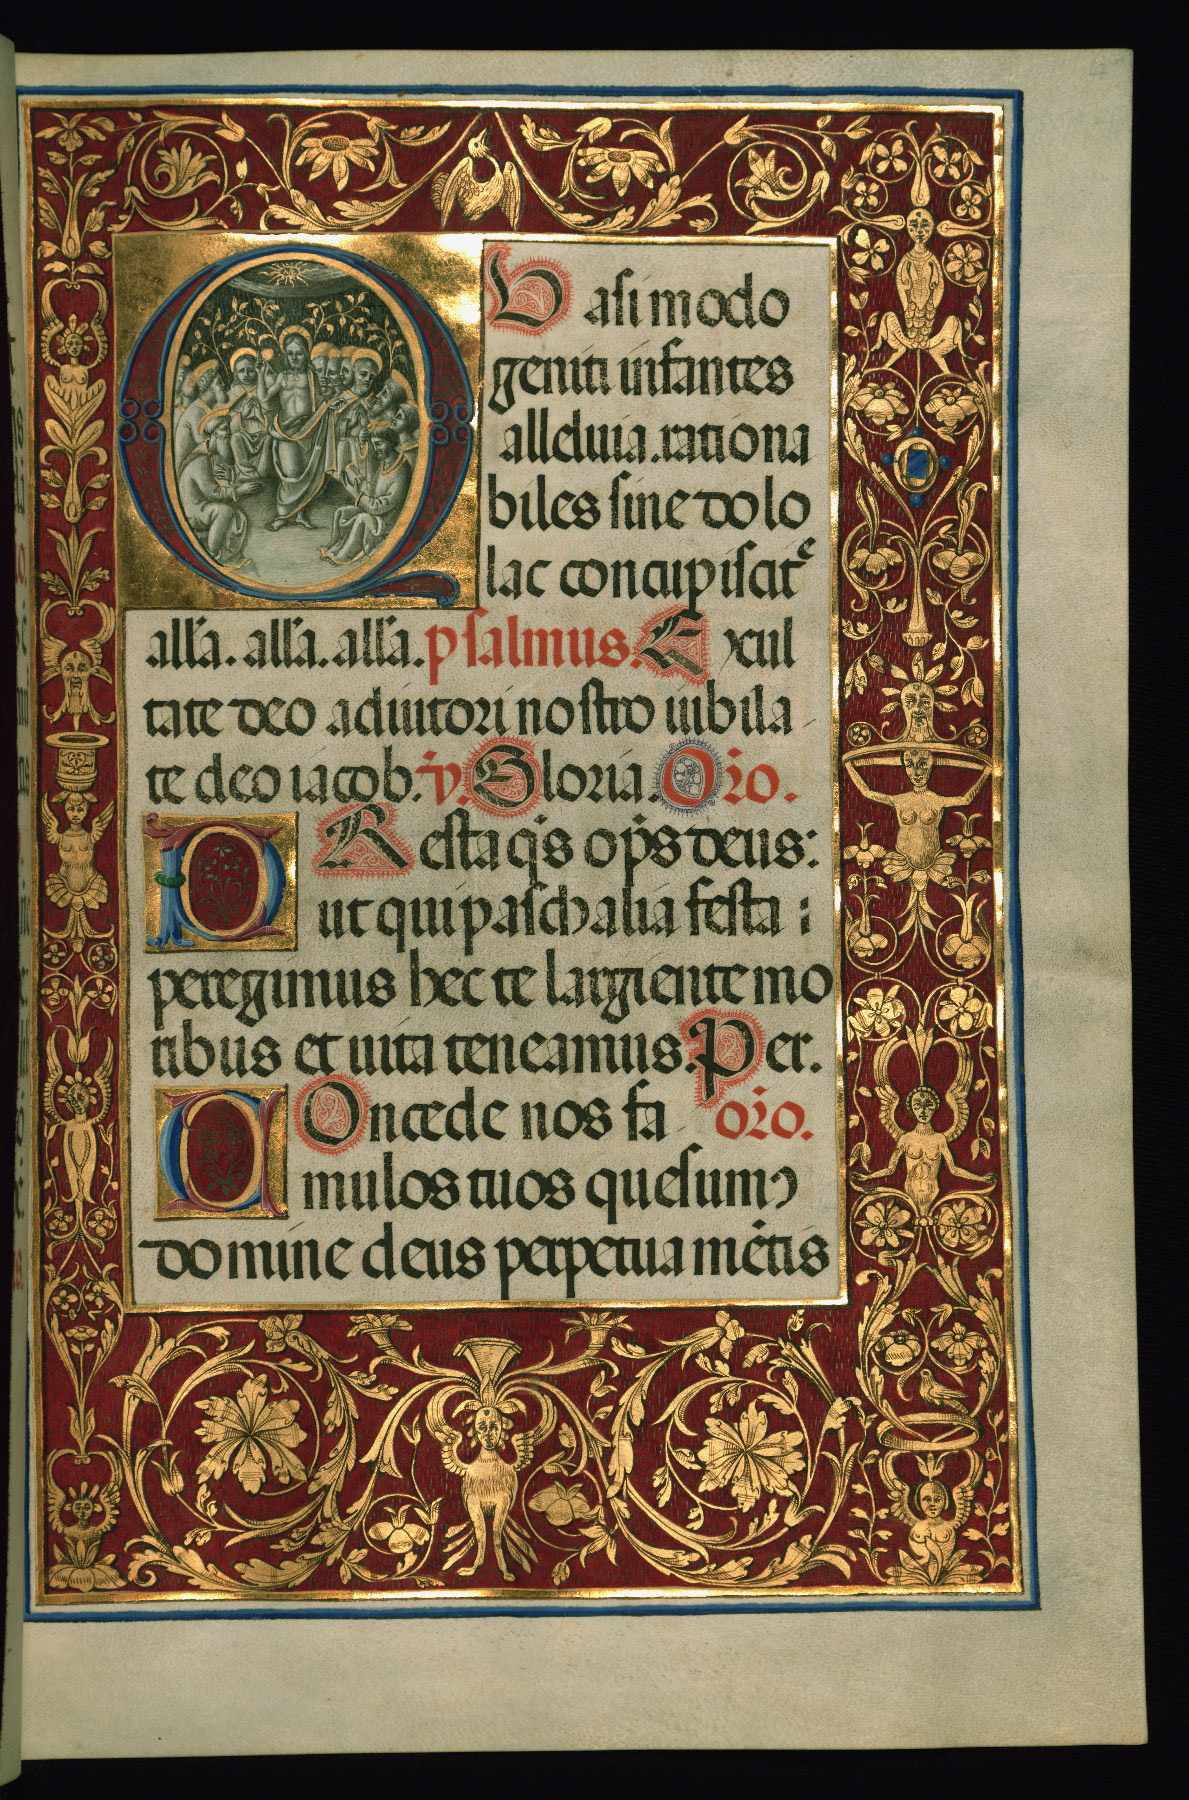 Quasi modo
geniti infantes
alleluia. rationa
biles sine dolo
lac concupiscitᵉ
all'a. all'a. all'a. psalmus. Exul
tate deo adiutori nostro iubila
te deo iacob. v̄. Gloria. Or̄o.
PResta q̄s op̄s deus:
ut qui paschalia festa
peregimus hec te largiente mo
ribus et uita teneamus. Per.
COncede nos fa or̄o.
mulos tuos quesumꝰ
domine deus perpetua mētis